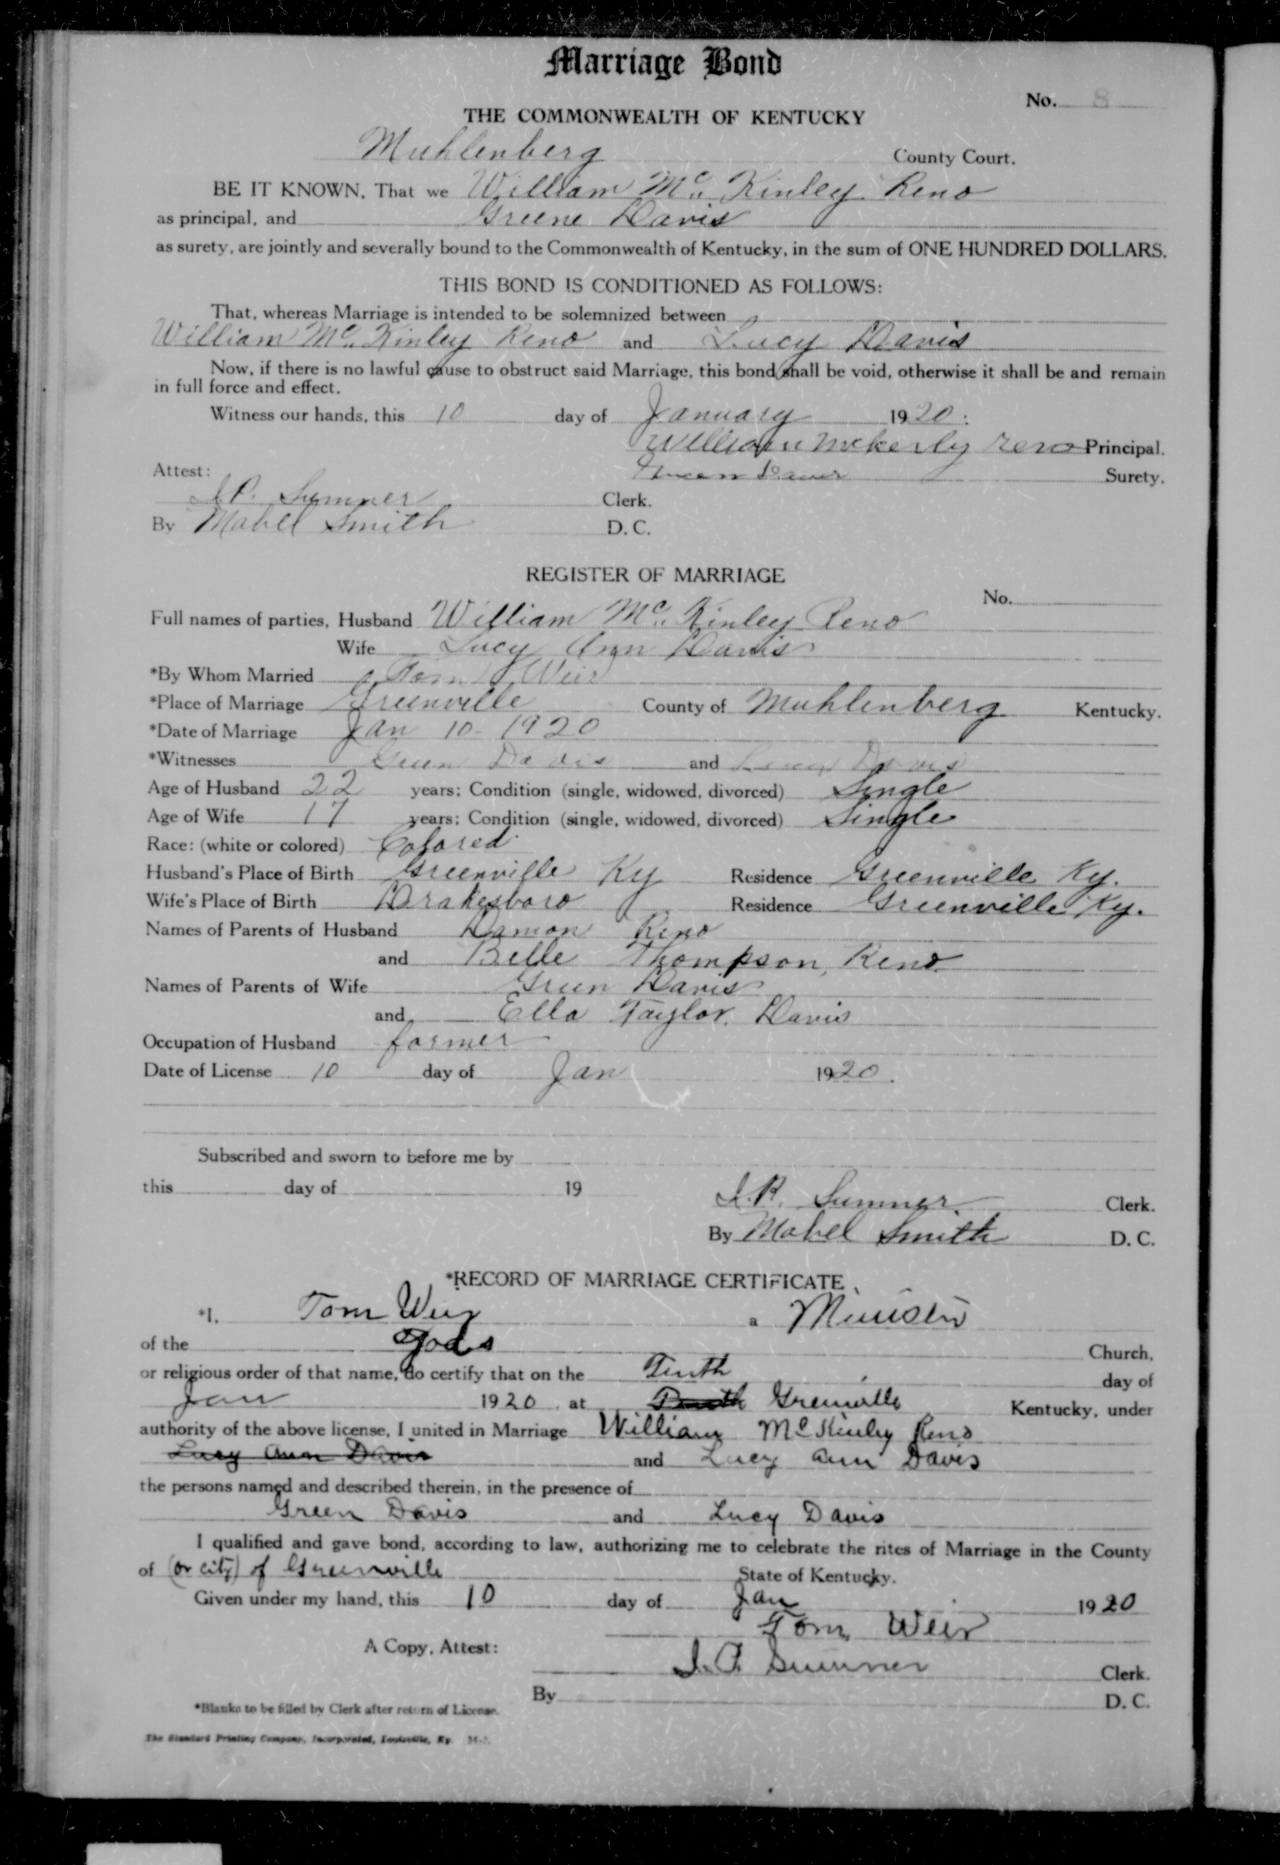 Marriage Bond
No. 8
THE COMMONWEALTH OF KENTUCKY
Muhlenberg County Court.
BE IT KNOWN, That we William Mc. Kinley Reno
as principal, and Greene Davis
as surety, are jointly and severally bound to the Commonwealth of Kentucky, in the sum of ONE HUNDRED DOLLARS.
THIS BOND IS CONDITIONED AS FOLLOWS:
That, whereas Marriage is intended to be solemnized between
William Mc. Kinley Reno and Lucy Davis
Now, if there is no lawful cause to obstruct said Marriage, this bond shall be void, otherwise it shall be and remain
in full force and effect.
Witness our hands, this 10 day of January 1920.
William McKerly Reno Principal.
Attest: Surety.
Sumner Clerk.
By Mabel Smith D. C.
REGISTER OF MARRIAGE
No.
Full names of parties, Husband William Mc. Kinley Reno
Wife Lucy Ann Davis
*By Whom Married Tom Weir
*Place of Marriage Greenville County of Muhlenberg Kentucky.
*Date of Marriage Jan 10 - 1920
*Witnesses Green Davis and Lucy Davis
Age of Husband 22 years; Condition (single, widowed, divorced) Single
Age of Wife 17 years; Condition (single, widowed, divorced) Single
Race: (white or colored) Colored
Husband's Place of Birth Greenville Ky Residence Greenville Ky.
Wife's Place of Birth Drakesboro Residence Greenville Ky.
Names of Parents of Husband Damon Reno
and Belle Thompson, Reno
Names of Parents of Wife Green Davis
and Ella Taylor. Davis
Occupation of Husband farmer
Date of License 10 day of Jan 1920.
Subscribed and sworn to before me by
this day of 19
Sumner Clerk.
By Mabel Smith D. C.
*RECORD OF MARRIAGE CERTIFICATE
*I, Tom Weir a Minister
of the Gods Church,
or religious order of that name, do certify that on the Tenth day of
Jan 1920, at Greenville Kentucky, under
authority of the above license, I united in Marriage William Mc Kinley Reno
Lucy Ann Davis and Lucy Ann Davis
the persons named and described therein, in the presence of
Green Davis and Lucy Davis
I qualified and gave bond, according to law, authorizing me to celebrate the rites of Marriage in the County
of (or city) of Greenville State of Kentucky.
Given under my hand, this 10 day of Jan 1920
Tom Weir
A Copy, Attest:
Sumner Clerk.
By D. C.
*Blanks to be filled by Clerk after return of License.
The Standard Printing Company, Incorporated, Louisville, Ky.